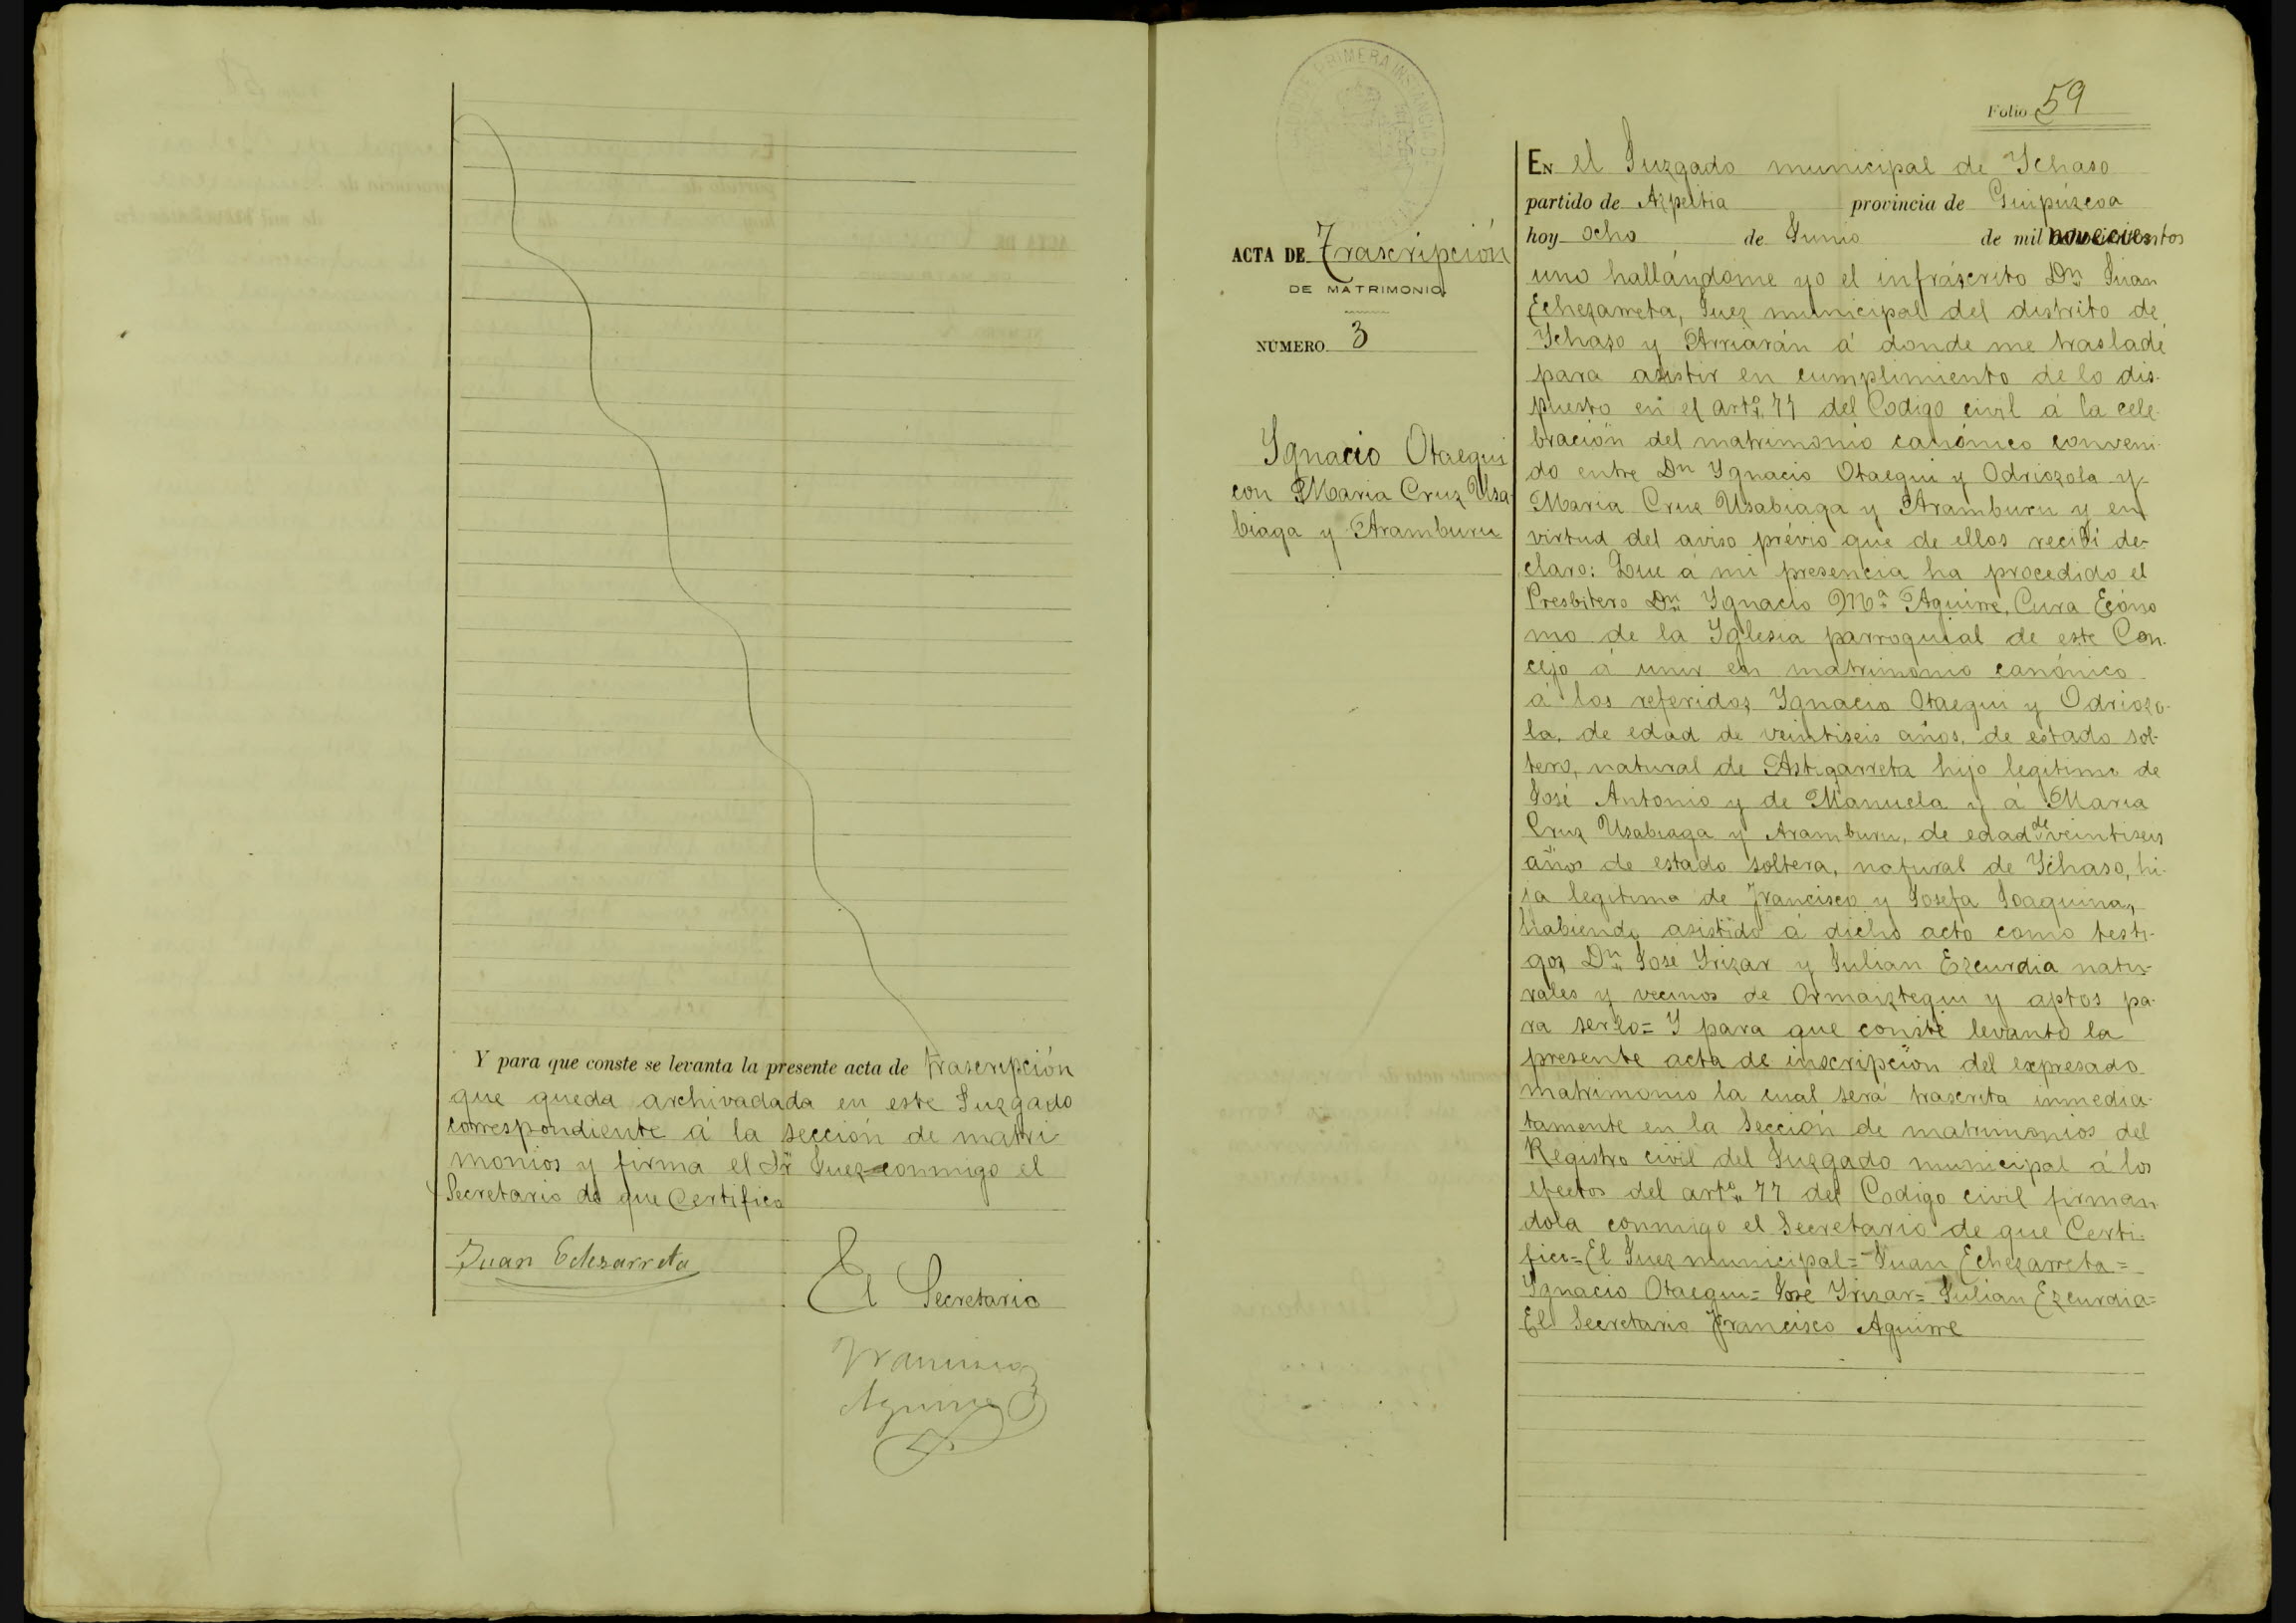 Y para que conste se levanta la presente acta de trascripción
que queda archivadada en este Juzgado
correspondiente á la sección de matri
monios y firma el Sr Juez conmigo el
Secretario de que Certifico
Juan Echezarreta
El Secretario
Francisco
Aguirre
Folio 59
ACTA DE Trascripción
DE MATRIMONIO
NÚMERO 3
Ygnacio Otaegui
con Maria Cruz Usa-
biaga y Aramburu
EN el Juzgado municipal de Ychaso
partido de Azpeitia provincia de Guipúzcoa
hoy ocho de Junio de mil novecientos
uno hallándome yo el infráscrito Dn Juan
Echezarreta, Juez municipal del distrito de
Ychaso y Arriarán á donde me trasladé
para asistir en cumplimiento de lo dis-
puesto en el arto. 77 del Codigo civil á la cele-
bración del matrimonio canónico conveni-
do entre Dn Ygnacio Otaegui y Odriozola y
Maria Cruz Usabiaga y Aramburu y en
virtud del aviso prévio que de ellos recibí de-
claro: Que á mi presencia ha procedido el
Presbitero Dn Ygnacio Ma Aguirre, Cura Ecóno
mo de la Yglesia parroquial de este Con-
cejo á unir en matrimonio canónico
á los referidos Ygnacio Otaegui y Odriozo-
la, de edad de veintiseis años, de estado sol-
tero, natural de Astigarreta hijo legitimo de
José Antonio y de Manuela y á Maria
Cruz Usabiaga y Aramburu, de edad de veintiseis
años de estado soltera, natural de Ychaso, hi-
ja legitima de Francisco y Josefa Joaquina,
habiendo asistido á dicho acto como testi-
gos Dn José Yrizar y Julian Ezcurdia natu-
rales y vecinos de Ormaiztegui y aptos pa-
ra serlo= Y para que conste levanto la
presente acta de inscripción del expresado
matrimonio la cual será trascrita inmedia-
tamente en la Sección de matrimonios del
Registro civil del Juzgado municipal á los
efectos del arto 77 del Codigo civil firman
dola conmigo el Secretario de que Certi-
fico= El Juez municipal= Juan Echezarreta=
Ygnacio Otaegui= José Yrizar= Julian Ezcurdia=
El Secretario Francisco Aguirre